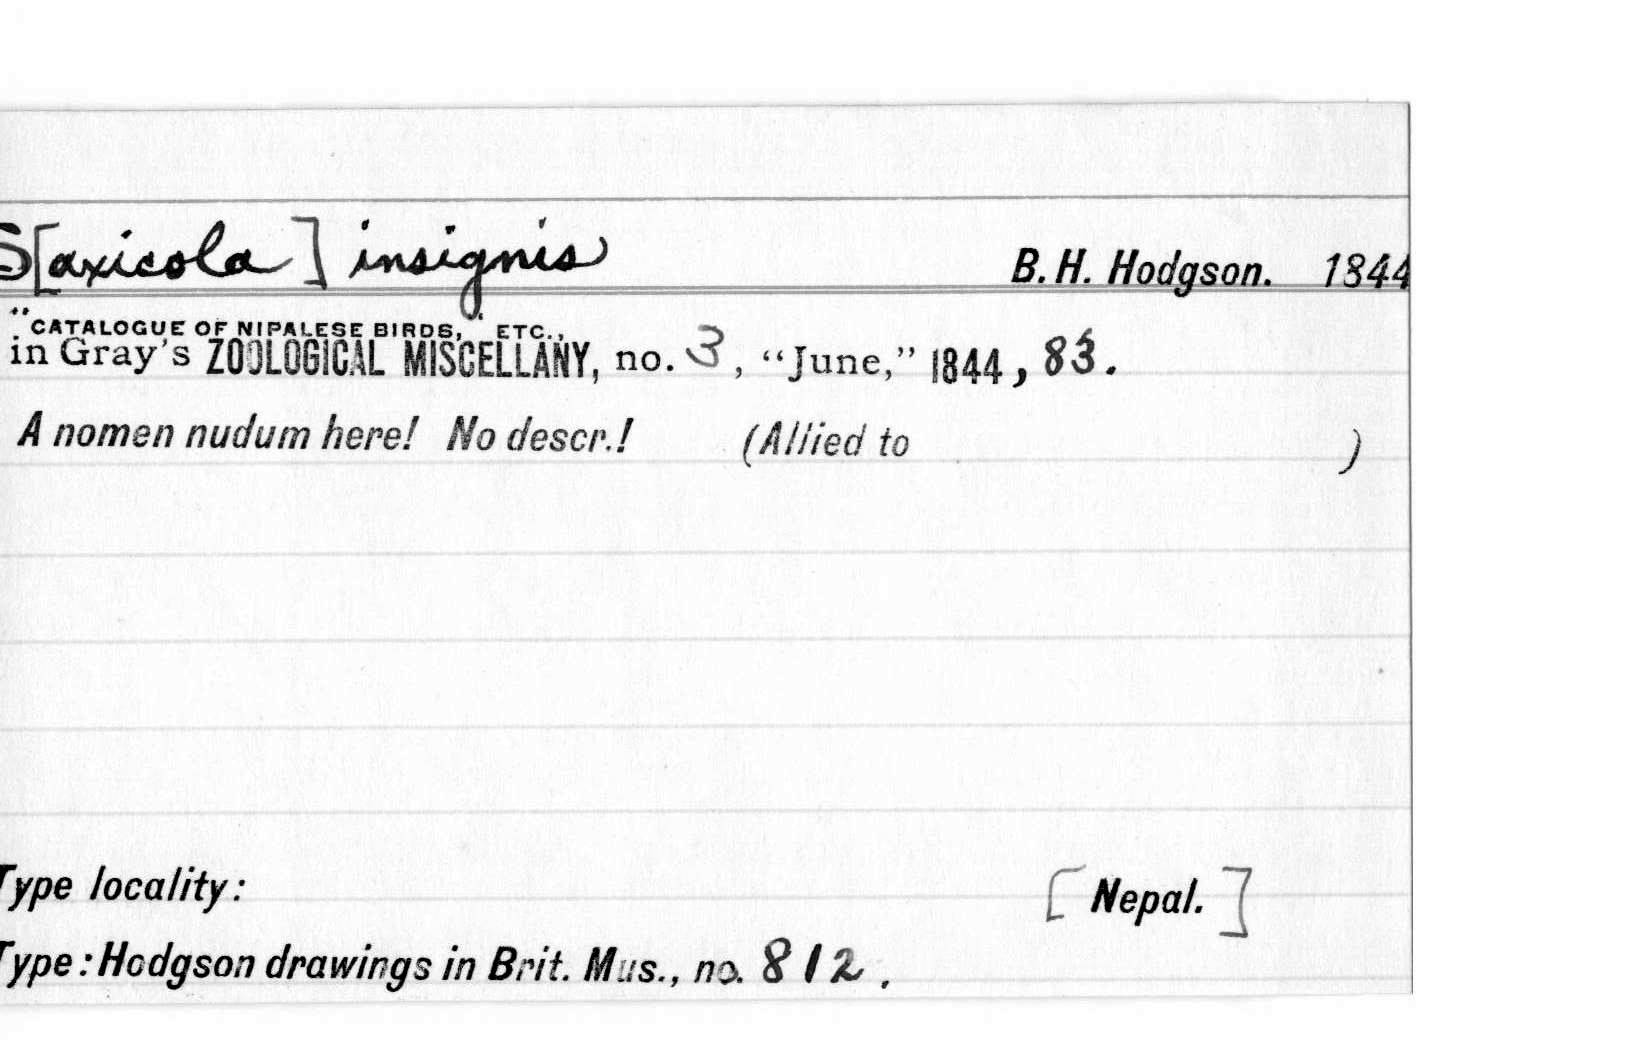 S[axicola] insignis B. H. Hodgson. 1844
"CATALOGUE OF NIPALESE BIRDS," ETC.,
in Gray's ZOOLOGICAL MISCELLANY, no. 3, "June," 1844, 83.
A nomen nudum here! No descr.! (Allied to )
Type locality: [Nepal.]
Type: Hodgson drawings in Brit. Mus., no. 812.